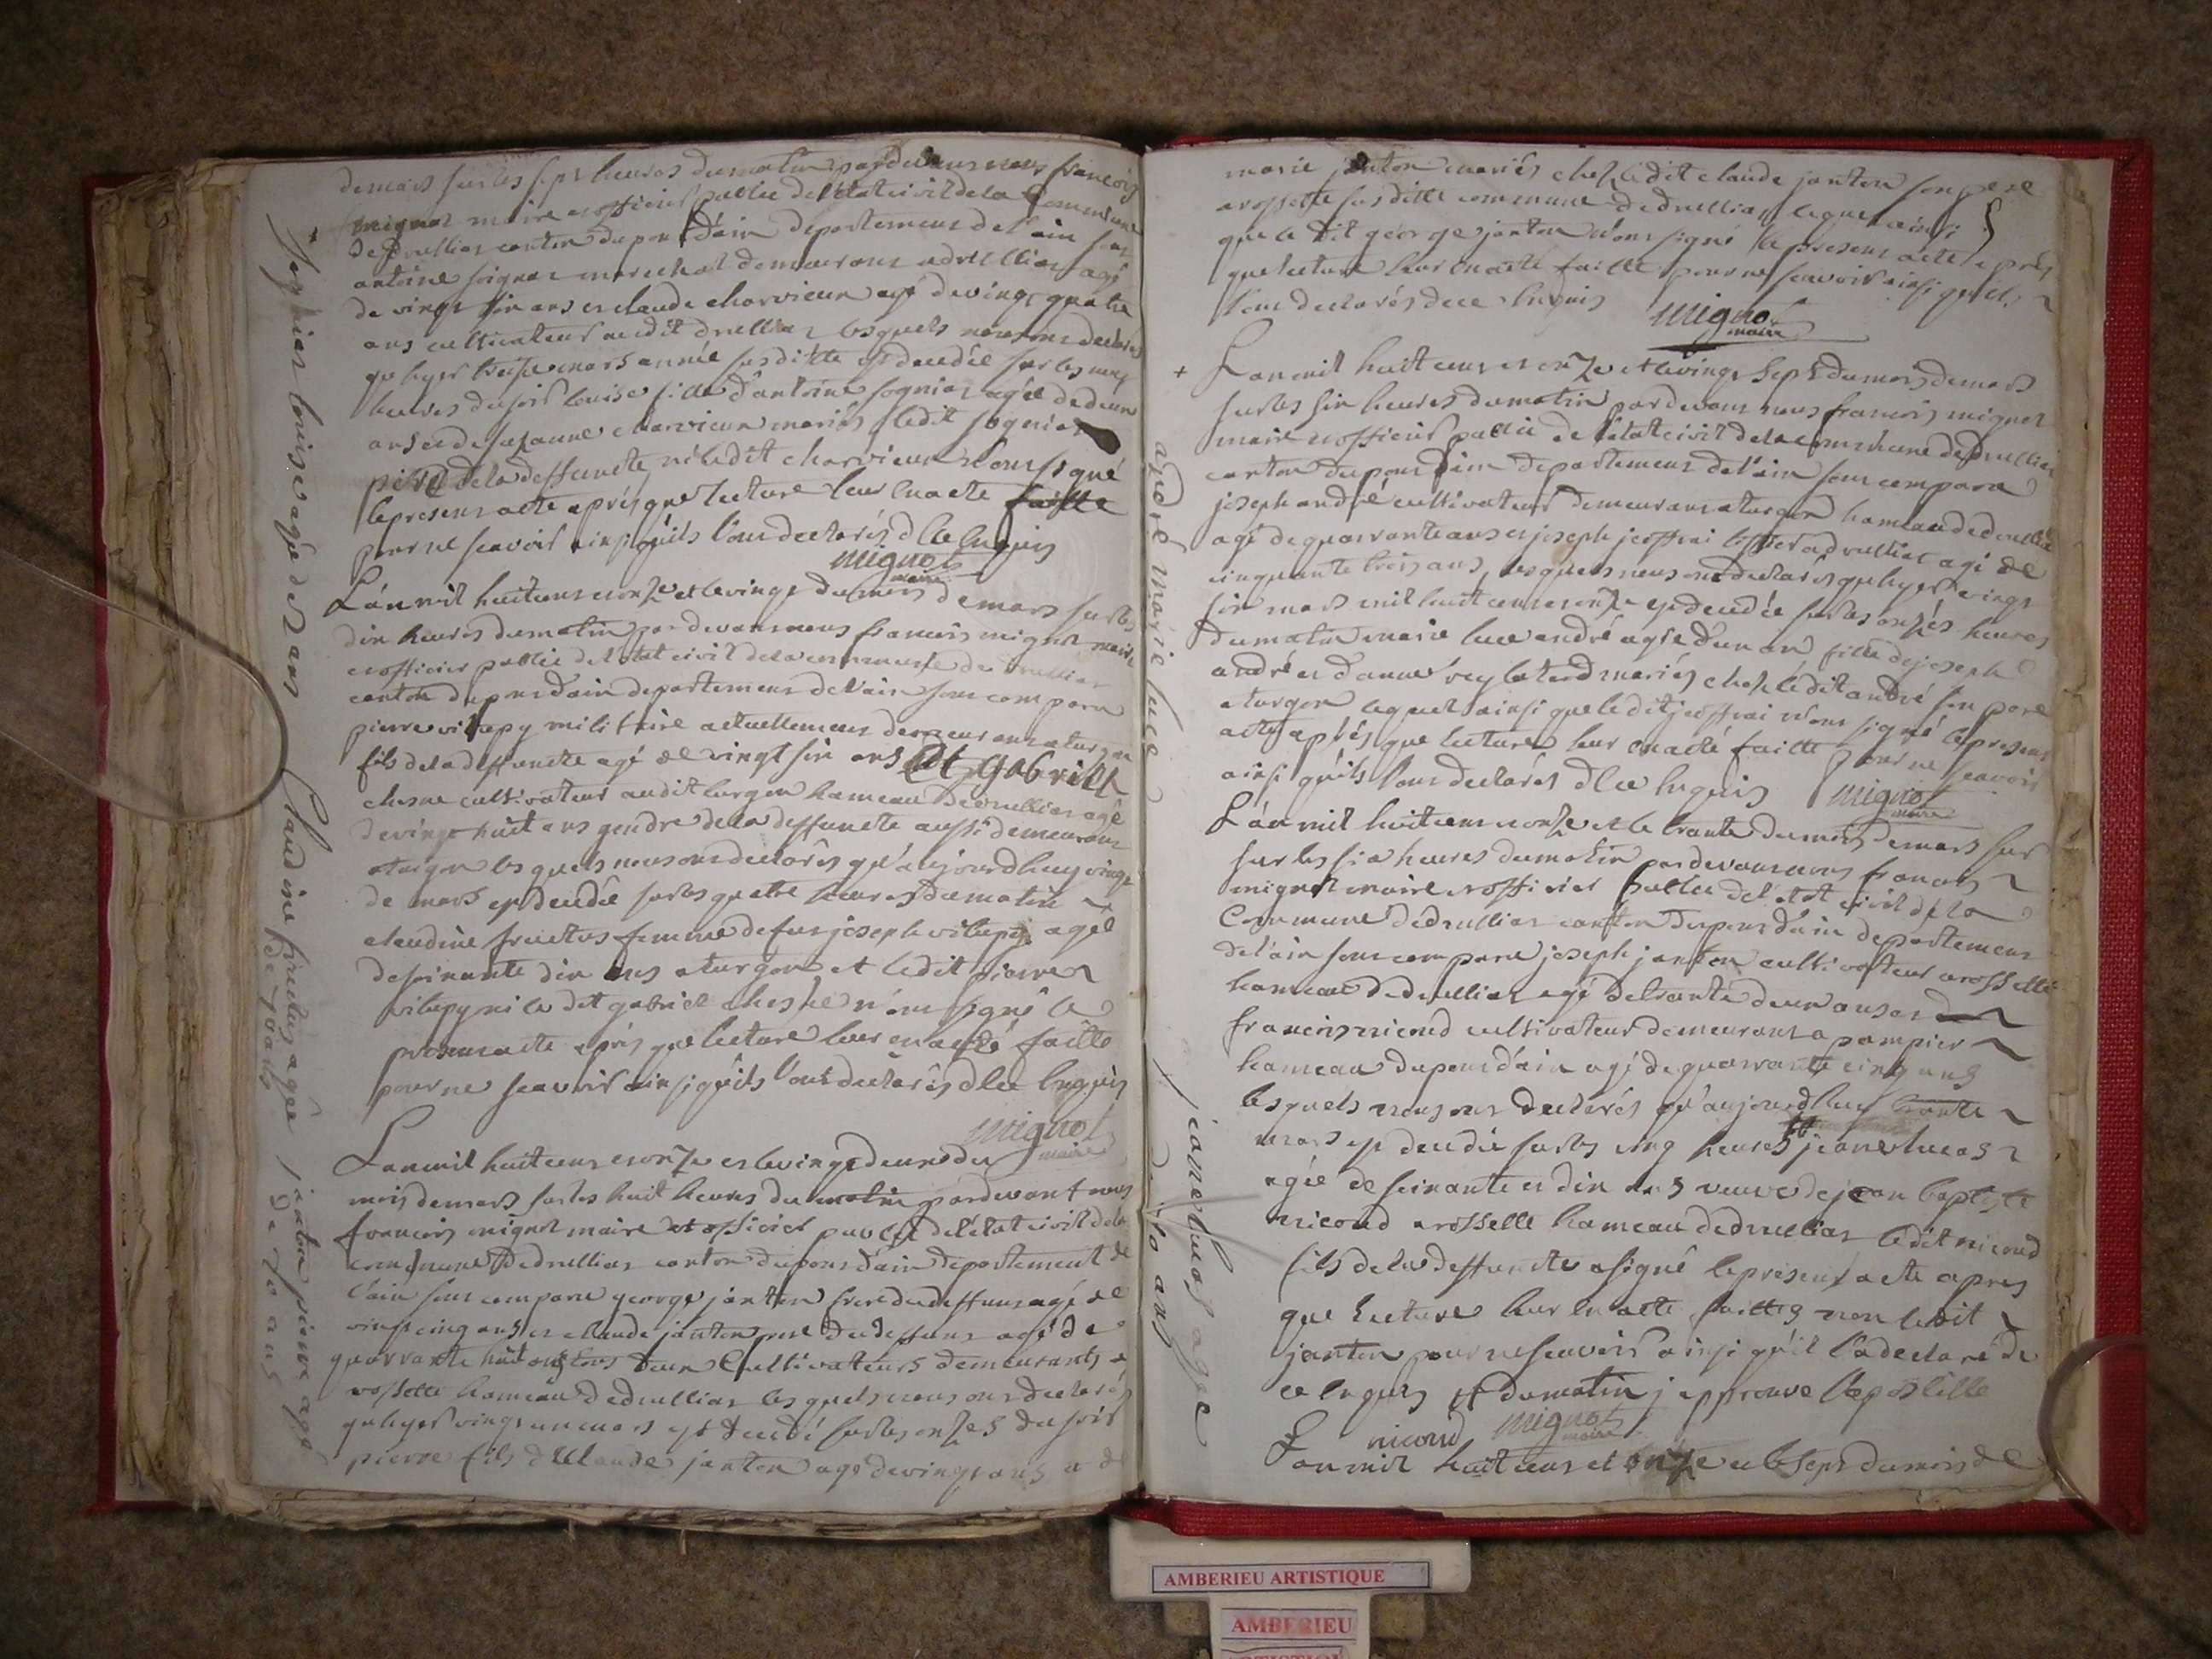 de mars sur les sept heures du matin par devans nous françois
mignot maire et officier public de l'état civil de la commune
de druillias canton du pon d'ain departement de l'ain sont
antoine sognias marechal demeurans a druillias agé
de vingt six ans et claude charvieux agé de vingt quatre
ans cultivateur audit druillias lesquels nous ont declarés
qu'hyer treise mars année susditte est decedée sur les neuf
heures du soir louise fille d'antoine sognias agée de deux
ans et de suzanne charvieux mariés ledit sognias
père de la deffuncte ni ledit charvieux n'ont signé
le presens acte après que lecture leur en a eté faitte
pour ne scavoir ainsi qu'ils l'ont declarés de ce enquis
mignot
maire
L'an mil huit cens et onze et le vingt du mois de mars sur les
dix heures du matin par devans nous françois mignot maire
et officier public de l'état civil de la commune de druillias
canton du pon d'ain departement de l'ain sont comparu
pierre vilepy militaire actuellement demeurans a turgon
fils de la deffuncte agé de vingt six ans et gabriel
chesne cultivateur audit turgon hameau de druillias agé
de vingt huit ans gendre de la deffuncte aussi demeurans
a turgon lesquels nous ont declarés qu'aujourd'huy vingt
de mars est decedée sur les quatre heures du matin
claudine fructus femme de feu joseph vilepy agée
de soixante dix ans a turgon et ledit pierre
vilepy ni le dit gabriel chesne n'ont signé le
presens acte après que lecture leur en a eté faitte
pour ne scavoir ainsi qu'ils l'ont declarés de ce enquis
mignot
maire
L'an mil huit cens et onze et le vingt deux du
mois de mars sur les huit heures du matin par devant nous
françois mignot maire et officier public de l'état civil de la
commune de druillias canton du pons d'ain departement de
l'ain sont comparu george janton frere du deffuns agé de
vingt cinq ans et claude janton pere du deffuns agé de
quarrante huit ans tous deux cultivateurs demeurants a
rosselle hameau de druillias lesquels nous ont declarés
qu'hyer vingt un mars est decedé sur les onzes du soir
pierre fils de claude janton agé de vingt ans et de
sognias louise agée de 2 ans
claudine fructus agée
de 70 ans
janton pierre agé
de 20 ans
marie janton mariés chez ledit claude janton son pere
a rosselle susditte commune de druillias lequel ainsi
que le dit george janton n'ont signé le presens acte après
que lecture leur en a eté faitte pour ne scavoir ainsi qu'ils
l'ont declarés de ce enquis
mignot
maire
+ L'an mil huit cens et onze et le vingt sept du mois de mars
sur les six heures du matin par devans nous françois mignot
maire et officier public de l'état civil de la commune de druillias
canton du pons d'ain departement de l'ain sont comparu
joseph andré cultivateur demeurans a turgon hameau de druillias
agé de quarrante ans et joseph jeoffrai a druillias agé de
cinquante trois ans, lesquels nous ont declarés qu'hyer vingt
six mars mil huit cens et onze est decedée sur les onzés heures
du matin marie luce andré agée d'un an fille de joseph
andré et d'anne mariés chez ledit andré son pere
a turgon lequel ainsi que ledit jeoffrai n'ont signé le presens
acte après que lecture leur en a eté faitte pour ne scavoir
ainsi qu'ils l'ont declarés de ce enquis
mignot
maire
L'an mil huit cens et onze et le trante du mois de mars sur
sur les six heures du matin par devans nous françois
mignot maire et officier public de l'état civil de la
commune de druillias canton du pons d'ain departemens
de l'ain sont comparu joseph janton cultivateur a rosselle
hameau de druillias agé de trante deux ans et
françois nicoud cultivateur demeurans a pampier
hameau du pons d'ain agé de quarrante cinq ans
lesquels nous ont declarés qu'aujourd'hui trante
mars est decedée sur les cinq heures jeane lucas
agée de soixante et dix ans veuve de jean baptiste
nicoud a rosselle hameau de druillias ledit nicoud
fils de la deffuncte a signé le present acte apres
que lecture leur en a eté faitte non ledit
janton pour ne scavoir ainsi qu'il l'a declaré de
ce enquis du matin j'approuve l'apostille
nicoud mignot
maire
L'an mil huit cens et onze et le sept du mois de
andré marie luce
jeane lucas agée
de 70 ans
AMBERIEU ARTISTIQUE
AMBERIEU